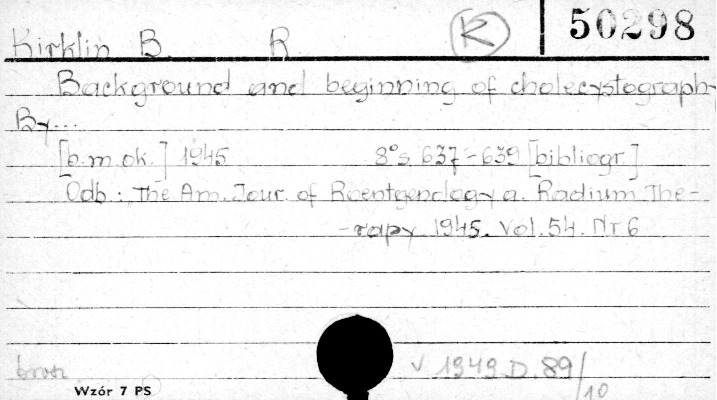 Kirklin B. R. K 50298
Background and beginning of cholecystography
By...
[b.m.ok.] 1945 8°s. 637-639 [bibliogr.]
Odb.: The Am. Jour. of Roentgenology a. Radium The-
-rapy 1945. Vol. 54. Nr. 6
brosz. v 1949 D. 89/10
Wzór 7 PS